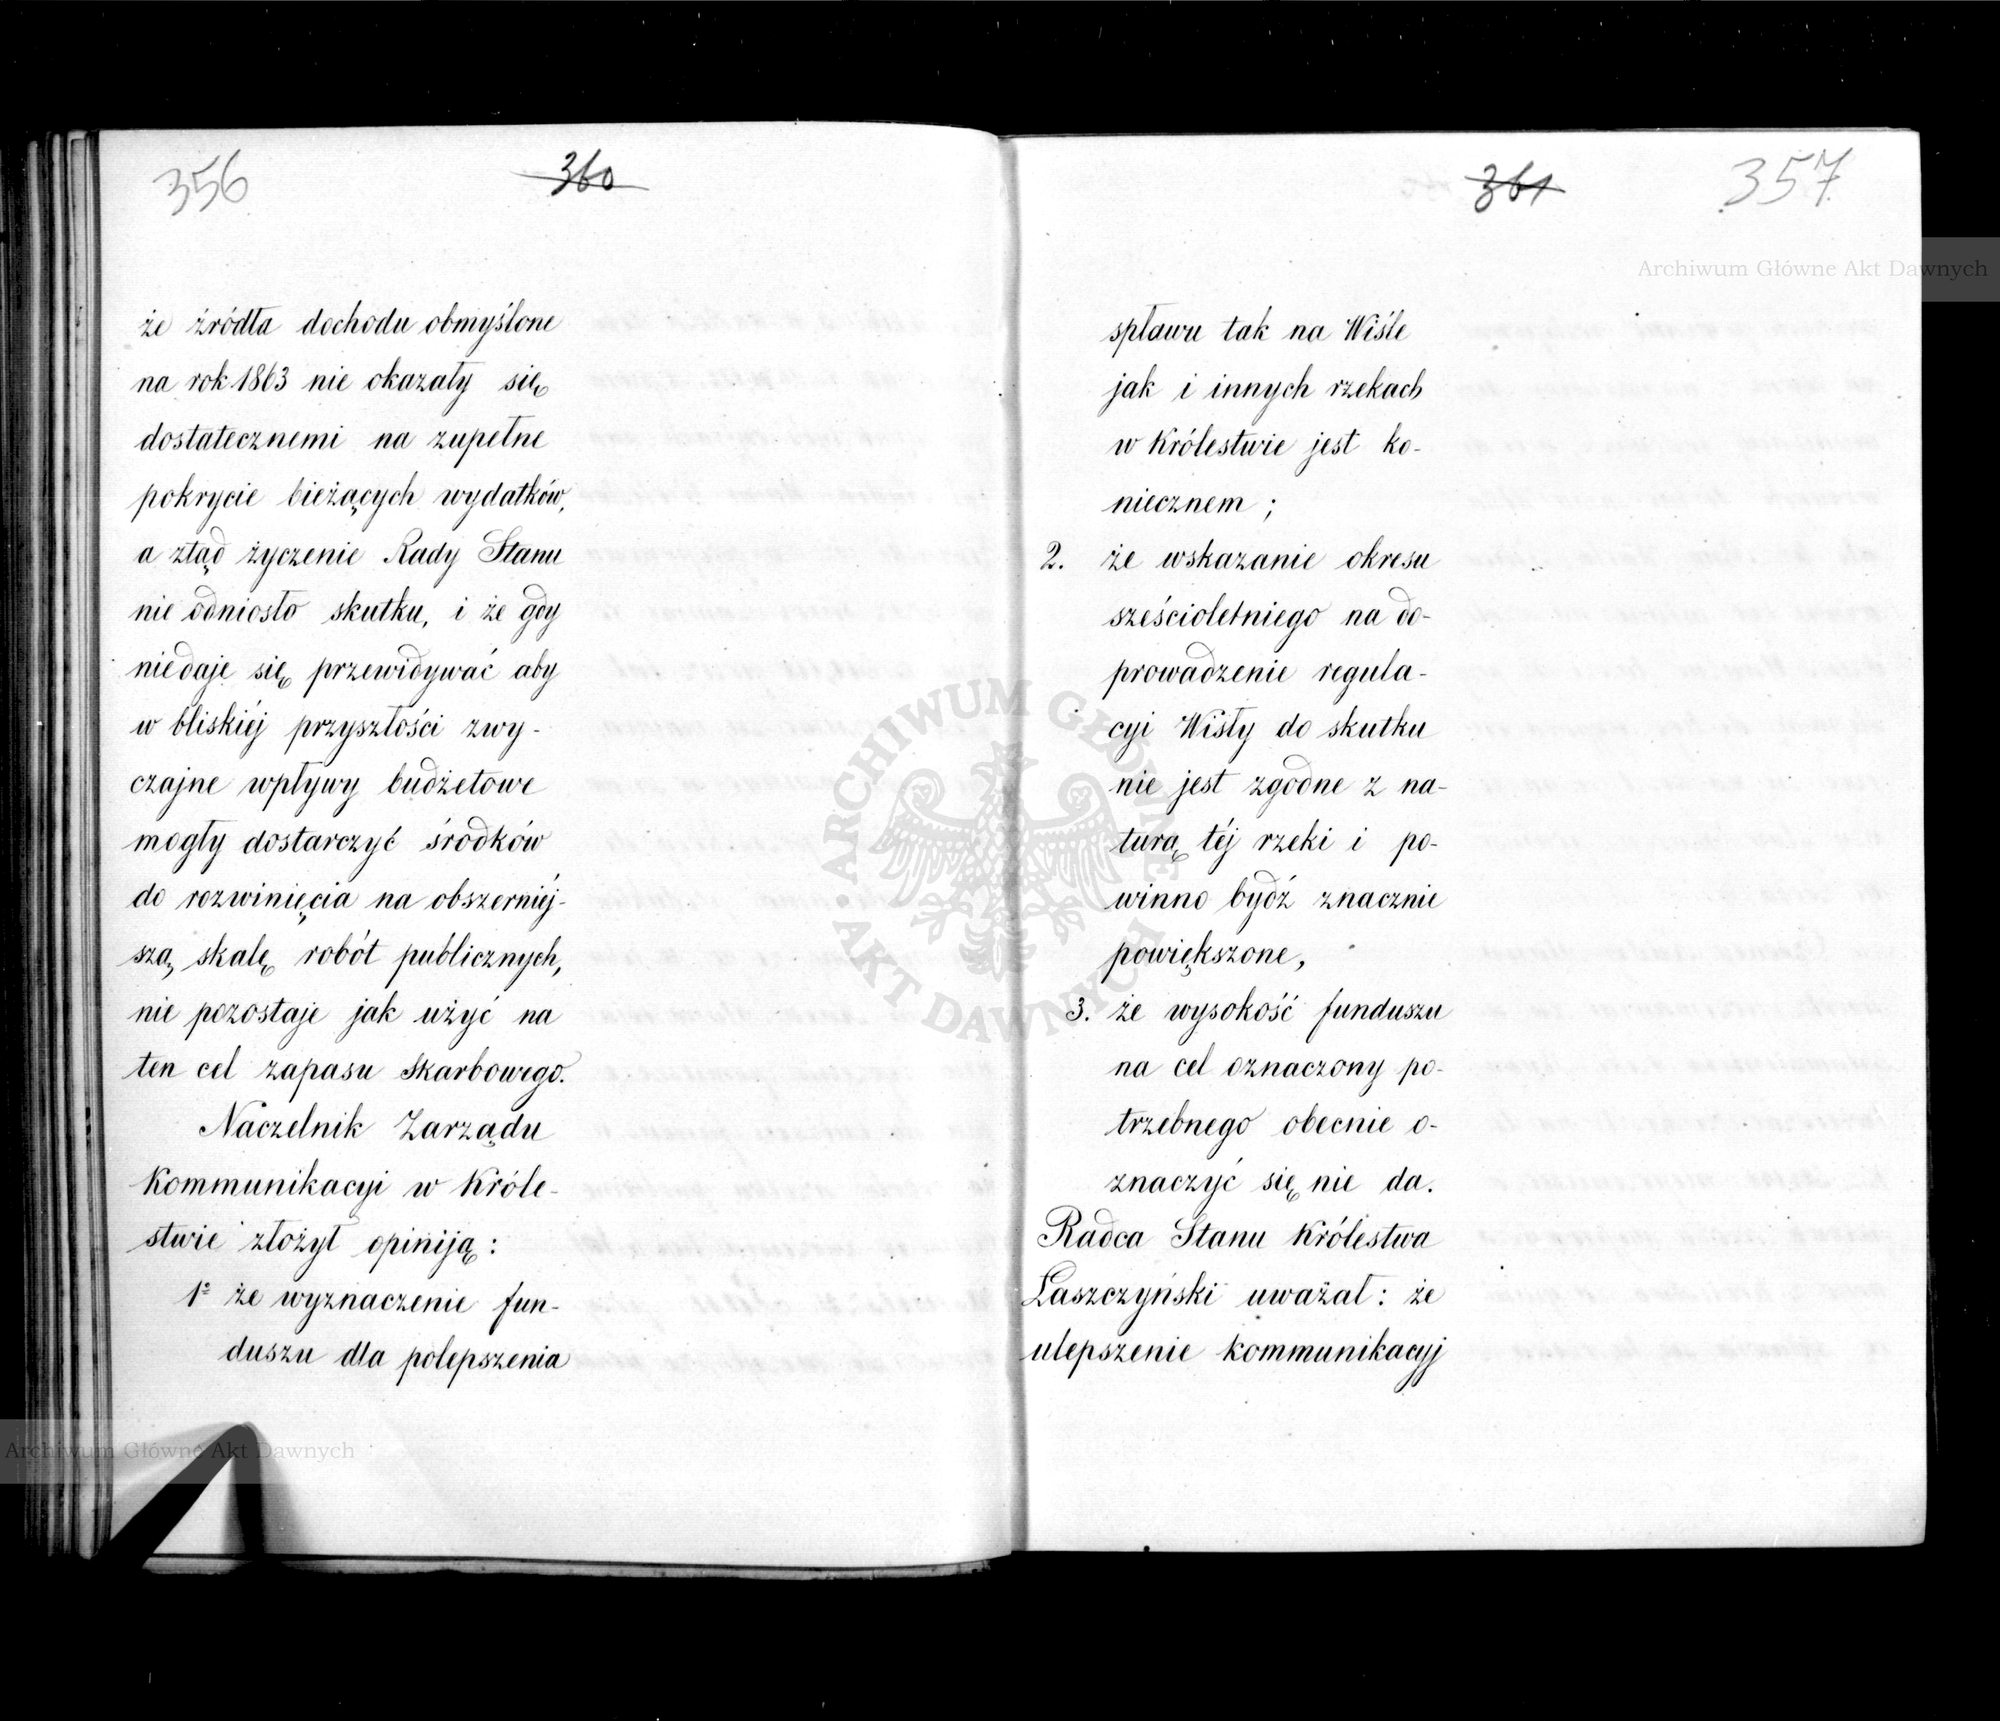 356
360
że źródła dochodu obmyślone
na rok 1863 nie okazały się
dostatecznemi na zupełne
pokrycie bieżących wydatków,
a ztąd życzenie Rady Stanu
nie odniosło skutku, i że gdy
niedaje się przewidywać aby
w bliskiéj przyszłości zwy-
czajne wpływy budżetowe
mogły dostarczyć środków
do rozwinięcia na obszerniéj-
szą skalę robót publicznych,
nie pozostaje jak użyć na
ten cel zapasu Skarbowego.
Naczelnik Zarządu
Kommunikacyi w Króle-
stwie złożył opiniją:
1º że wyznaczenie fun-
duszu dla polepszenia
361
357
Archiwum Główne Akt Dawnych
spławu tak na Wiśle
jak i innych rzekach
w Królestwie jest ko-
niecznem;
2. że wskazanie okresu
sześcioletniego na do-
prowadzenie regula-
cyi Wisły do skutku
nie jest zgodne z na-
turą téj rzeki i po-
winno bydź znacznie
powiększone,
3. że wysokość funduszu
na cel oznaczony po-
trzebnego obecnie o-
znaczyć się nie da.
Radca Stanu Królestwa
Łaszczyński uważał: że
ulepszenie kommunikacyj
ARCHIWUM GŁÓWNE AKT DAWNYCH
Archiwum Główne Akt Dawnych